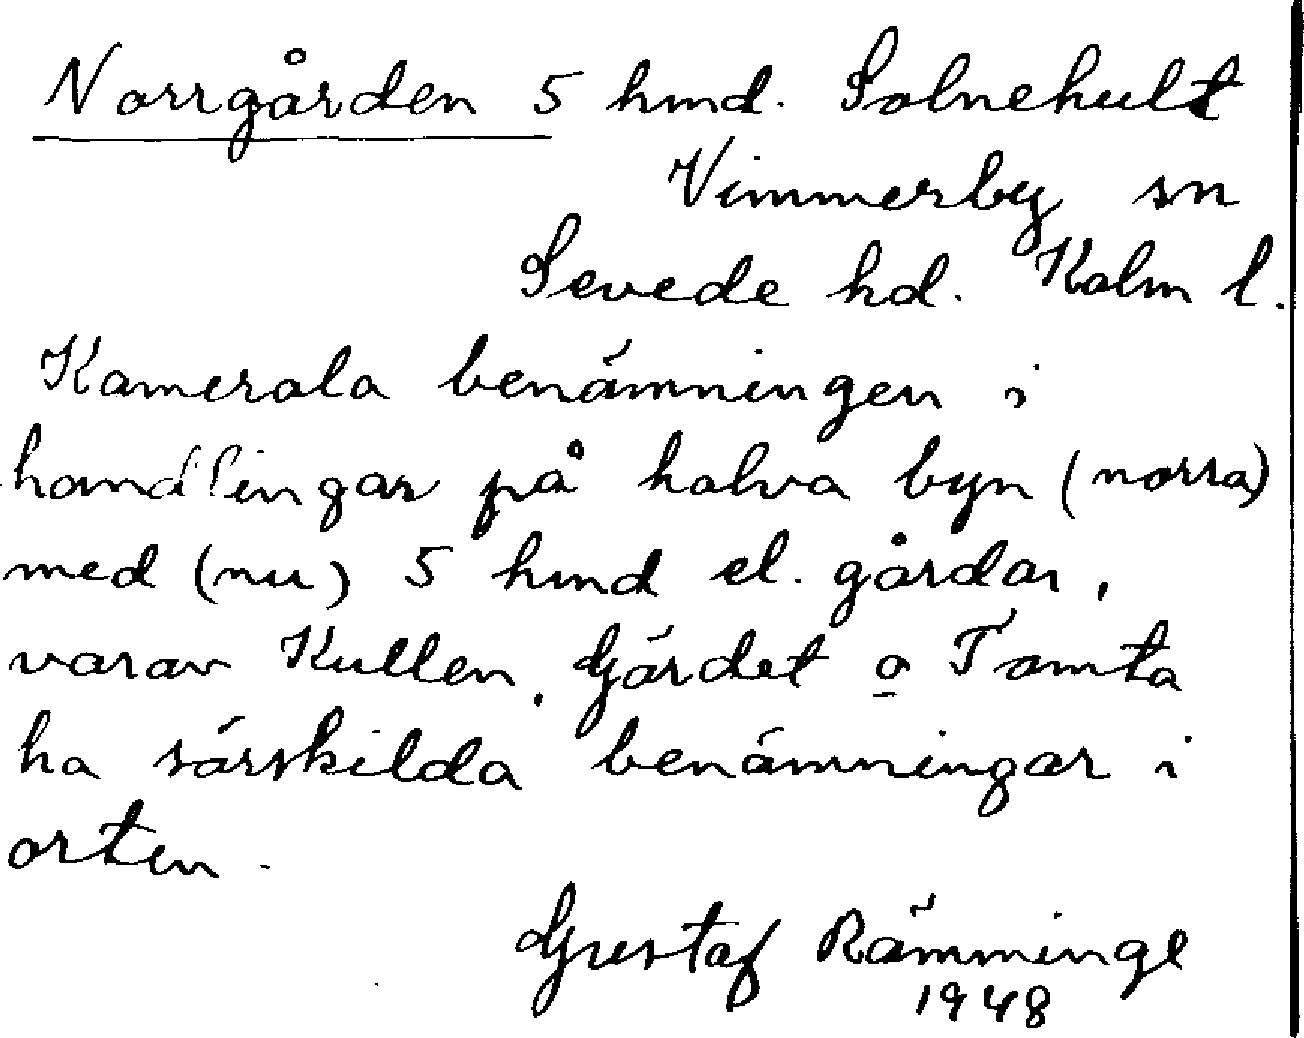 Norrgården 5 hmd. Solnehult
Vimmerby sn
Sevede hd. Kalm l.
Kamerala benämningen i
handlingar på halva byn (norra)
med (nu) 5 hmd el. gårdar,
varav Kullen, Gärdet o Tomta
ha särskilda benämningar i
orten.
Gustaf Rämminge
1948